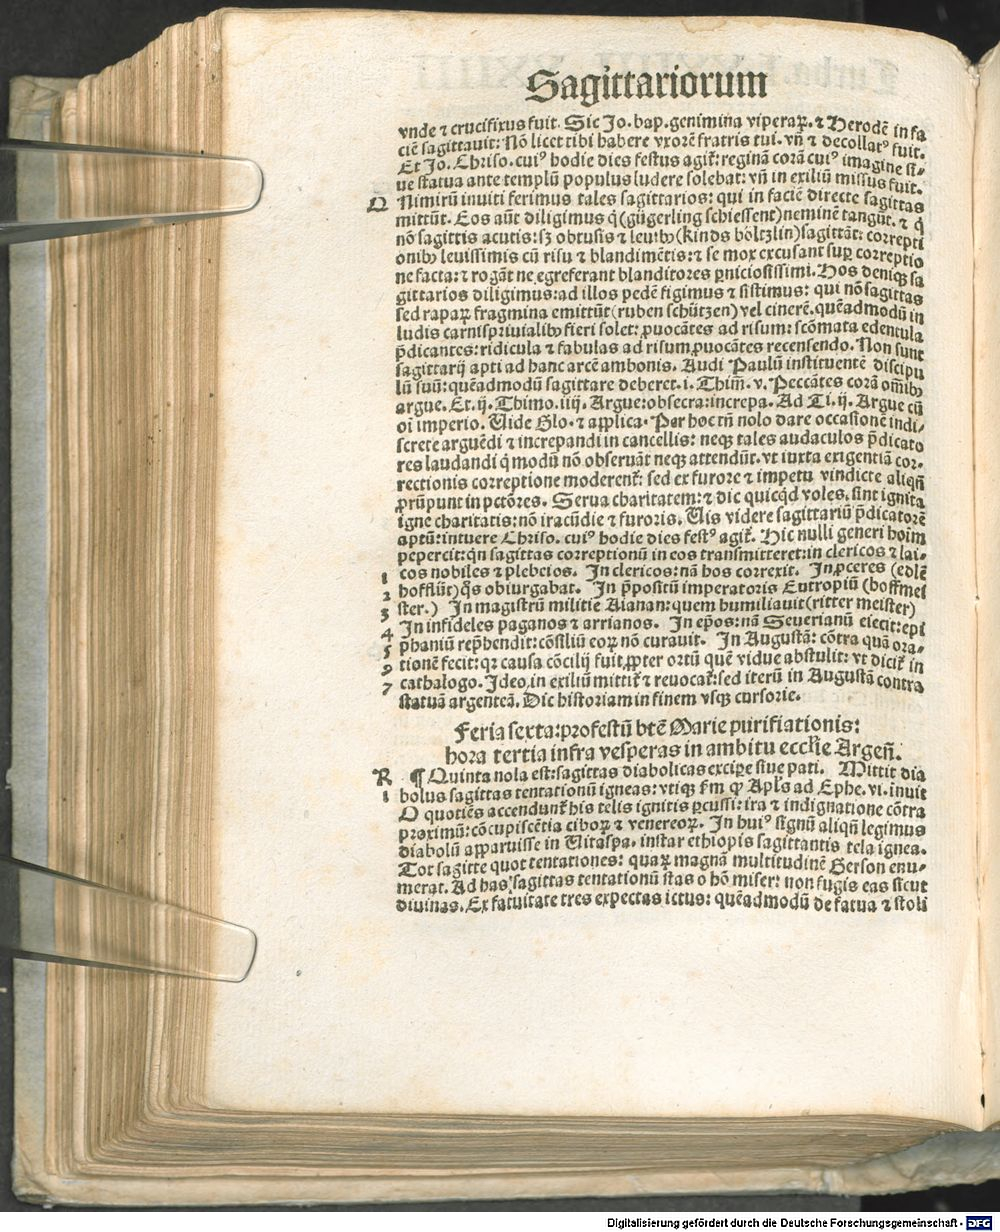 Sagittariorum
vnde ⁊ crucifixus fuit. Sic Jo. bap. genimina viperaꝝ. ⁊ Herodē in fa
ciē sagittauit: Nō licet tibi habere vxorē fratris tui. vñ ⁊ decollatꝰ fuit.
Et Jo. Chriso. cuiꝰ hodie dies festus agit᷑: reginā corā cuiꝰ imagine si-
ue statua ante templū populus ludere solebat: vñ in exiliū missus fuit.
Q Nimirū inuiti ferimus tales sagittarios: qui in faciē directe sagittas
mittūt. Eos aūt diligimus q̇ (gügerling schiessent) neminē tangūt. ⁊ q̇
nō sagittis acutis: sꝫ obtusis ⁊ leuibꝰ (kinds böltzlin) sagittāt: correpti
onibꝰ leuissimis cū risu ⁊ blandimētis: ⁊ se mox excusant suꝑ correptio
ne facta: ⁊ rogāt ne egreferant blanditores ꝑniciosissimi. Hos deniqꝫ sa
gittarios diligimus: ad illos pedē figimus ⁊ sistimus: qui nō sagittas
sed rapaꝝ fragmina emittūt (ruben schützen) vel cinerē. quēadmodū in
ludis carnispriuialibꝰ fieri solet: ꝓuocātes ad risum: scōmata edentula
p̄dicantes: ridicula ⁊ fabulas ad risum ꝓuocātes recensendo. Non sunt
sagittarij apti ad hanc arcē ambonis. Audi Paulū instituentē discipu
lū suū: quēadmodū sagittare deberet. i. Thim̄. v. Peccātes corā om̄ibꝰ
argue. Et. ij. Thimo. iiij. Argue: obsecra: increpa. Ad Ti. ij. Argue cū
oī imperio. Vide Glo. ⁊ applica. Per hoc tn̄ nolo dare occasionē indi-
screte arguēdi ⁊ increpandi in cancellis: neqꝫ tales audaculos p̄dicato
res laudandi q̇ modū nō obseruāt neqꝫ attendūt. vt iuxta exigentiā cor-
rectionis correptione moderent᷑: sed ex furore ⁊ impetu vindicte aliqn̄
ꝓrūpunt in pctōres. Serua charitatem: ⁊ dic quicqd voles. sint ignita
igne charitatis: nō iracūdie ⁊ furoris. Vis videre sagittariū p̄dicatorē
aptū: intuere Chriso. cuiꝰ hodie dies festꝰ agit᷑. Hic nulli generi hoīm
pepercit: qn̄ sagittas correptionū in eos transmitteret: in clericos ⁊ lai-
1 cos nobiles ⁊ plebeios. In clericos: nā hos correxit. In ꝓceres (edlē
2 hofflüt) q̄s obiurgabat. In p̄positū imperatoris Eutropiū (hoffmei
3 ster.) In magistrū militie Aianan: quem humiliauit (ritter meister)
4 In infideles paganos ⁊ arrianos. In ep̄os: nā Seuerianū eiecit: epi
5 phaniū rep̄hendit: cōsiliū eoꝝ nō curauit. In Augustā: cōtra quā ora-
9 tionē fecit: qꝛ causa cōcilij fuit ꝓpter ortū quē vidue abstulit: vt dicit᷑ in
7 cathalogo. Ideo in exiliū mittit᷑ ⁊ reuocat᷑: sed iterū in Augustā contra
statuā argenteā. Dic historiam in finem vsqꝫ cursorie.
Feria sexta: profestū btē Marie purifiationis:
hora tertia infra vesperas in ambitu eccl̄ie Argeñ.
R ¶ Quinta nola est: sagittas diabolicas exciꝑe siue pati. Mittit dia
1 bolus sagittas tentationū igneas: vtiqꝫ ẜm ꝙ Apl̄s ad Ephe. vi. inuit
O quotiēs accendunt᷑ his telis ignitis ꝑcussi: ira ⁊ indignatione cōtra
proximū: cōcupiscētia ciboꝝ ⁊ venereoꝝ. In huiꝰ signū aliqn̄ legimus
diabolū apparuisse in Vitaspa. instar ethiopis sagittantis tela ignea.
Tot sagitte quot tentationes: quaꝝ magnā multitudinē Gerson enu-
merat. Ad has sagittas tentationū stas o hō miser: non fugis eas sicut
diuinas. Ex fatuitate tres expectas ictus: quēadmodū de fatua ⁊ stoli
Digitalisierung gefördert durch die Deutsche Forschungsgemeinschaft - DFG